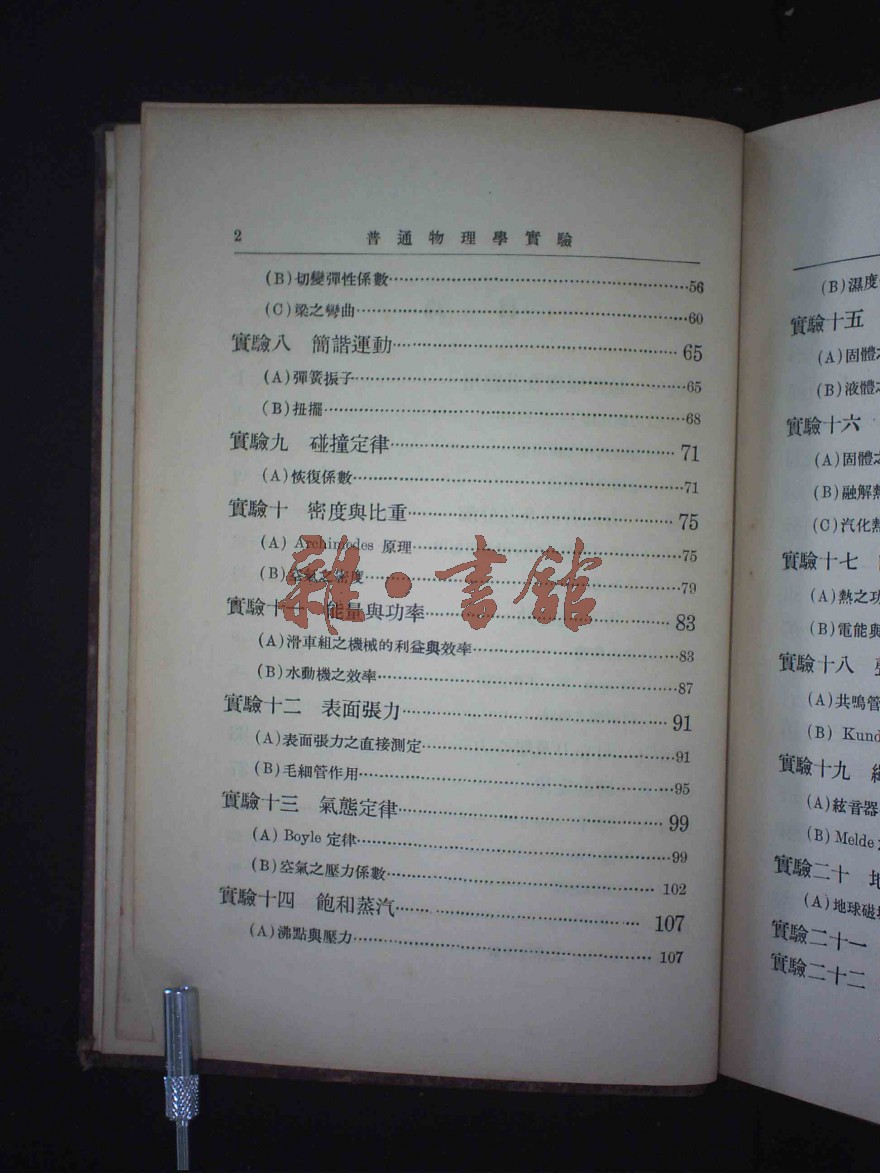 2 普通物理學實驗
(B)切變彈性係數 56
(C)梁之彎曲 60
實驗八 簡諧運動 65
(A)彈簧振子 65
(B)扭擺 68
實驗九 碰撞定律 71
(A)恢復係數 71
實驗十 密度與比重 75
(A) Archimedes 原理 75
(B)空氣之密度 79
實驗十一 能量與功率 83
(A)滑車組之機械的利益與效率 83
(B)水動機之效率 87
實驗十二 表面張力 91
(A)表面張力之直接測定 91
(B)毛細管作用 95
實驗十三 氣態定律 99
(A) Boyle 定律 99
(B)空氣之壓力係數 102
實驗十四 飽和蒸汽 107
(A)沸點與壓力 107
雜·書館
(B)濕度
實驗十五
(A)固體
(B)液體
實驗十六
(A)固體
(B)融解
(C)汽化
實驗十七
(A)熱之
(B)電能
實驗十八
(A)共鳴管
(B) Kund
實驗十九
(A)絃音器
(B) Melde
實驗二十
(A)地球磁
實驗二十一
實驗二十二